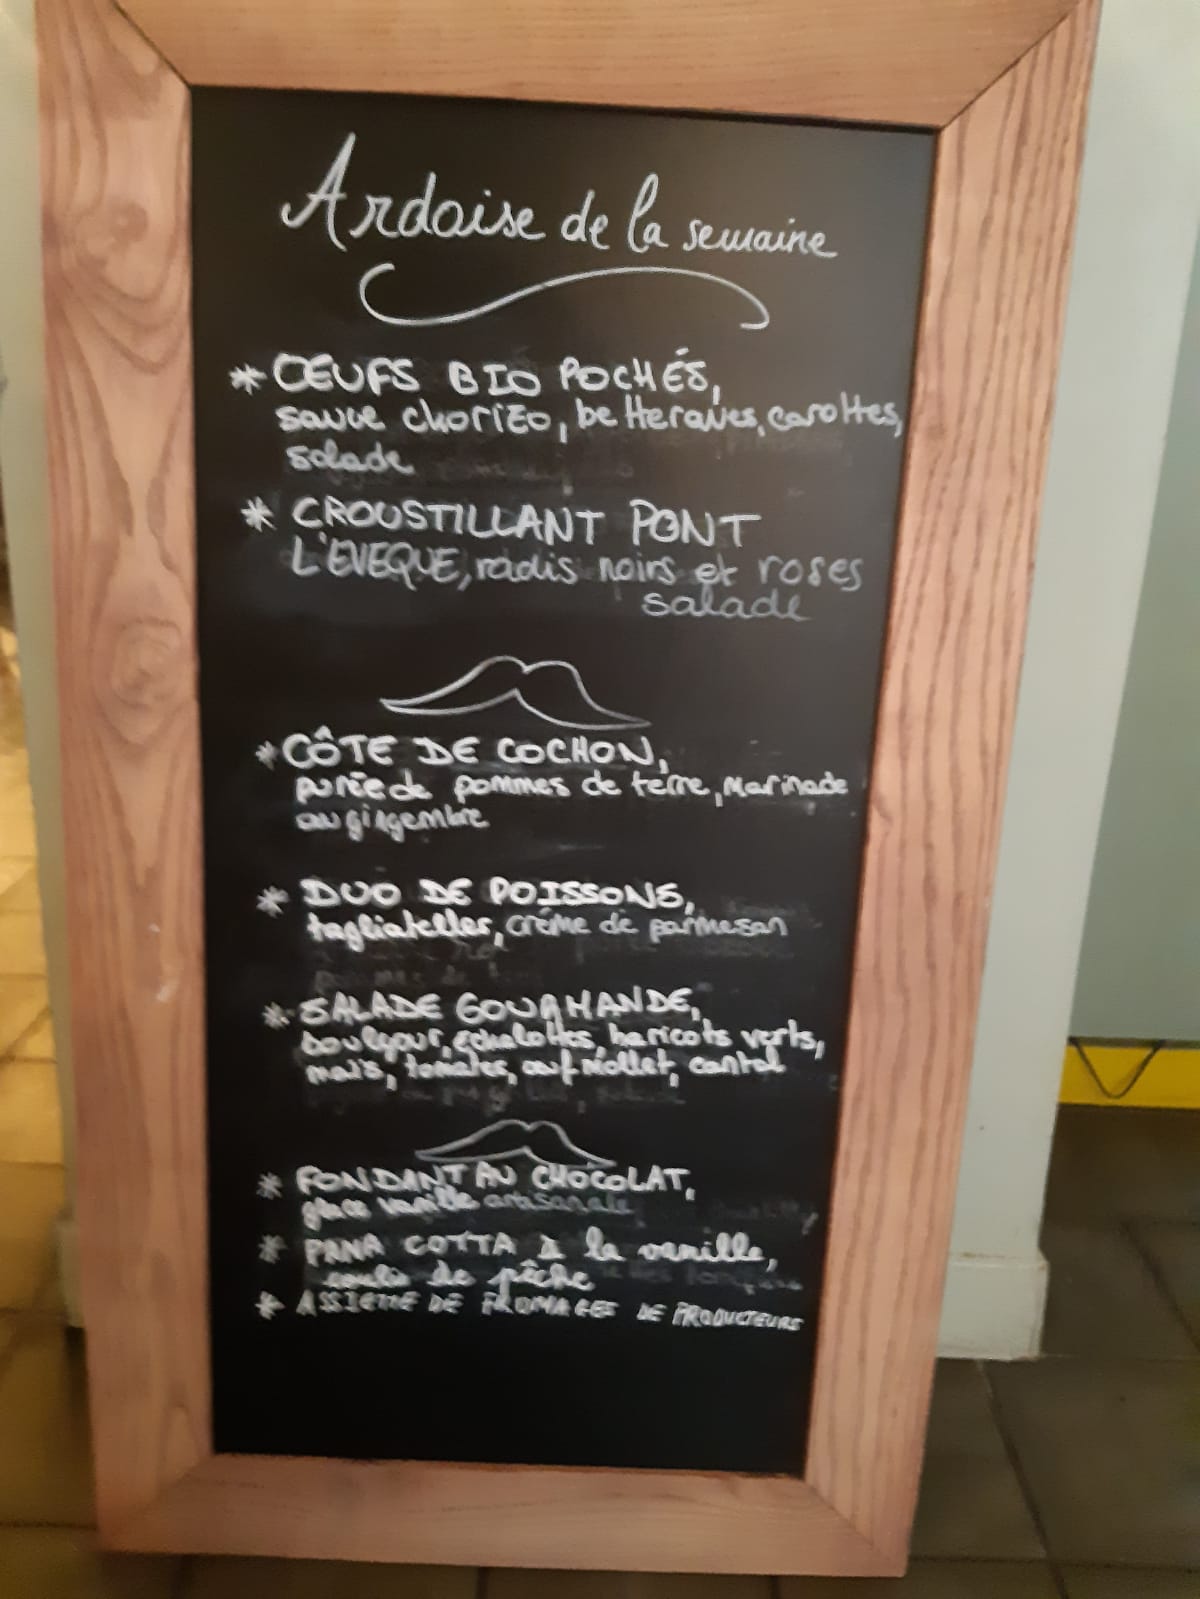 Ardoise de la semaine
* OEUFS BIO POCHÉS,
sauce chorizo, betteraves, carottes,
salade
* CROUSTILLANT PONT
L'EVEQUE, radis noirs et roses
salade
* CÔTE DE COCHON,
purée de pommes de terre, marinade
au gingembre
* DUO DE POISSONS,
tagliatelles, crème de parmesan
* SALADE GOURMANDE,
boulgour, échalottes, haricots verts,
maïs, tomates, oeuf mollet, cantal
* FONDANT AU CHOCOLAT,
glace vanille artisanale
* PANA COTTA à la vanille,
coulis de pêche
* ASSIETTE DE FROMAGES DE PRODUCTEURS